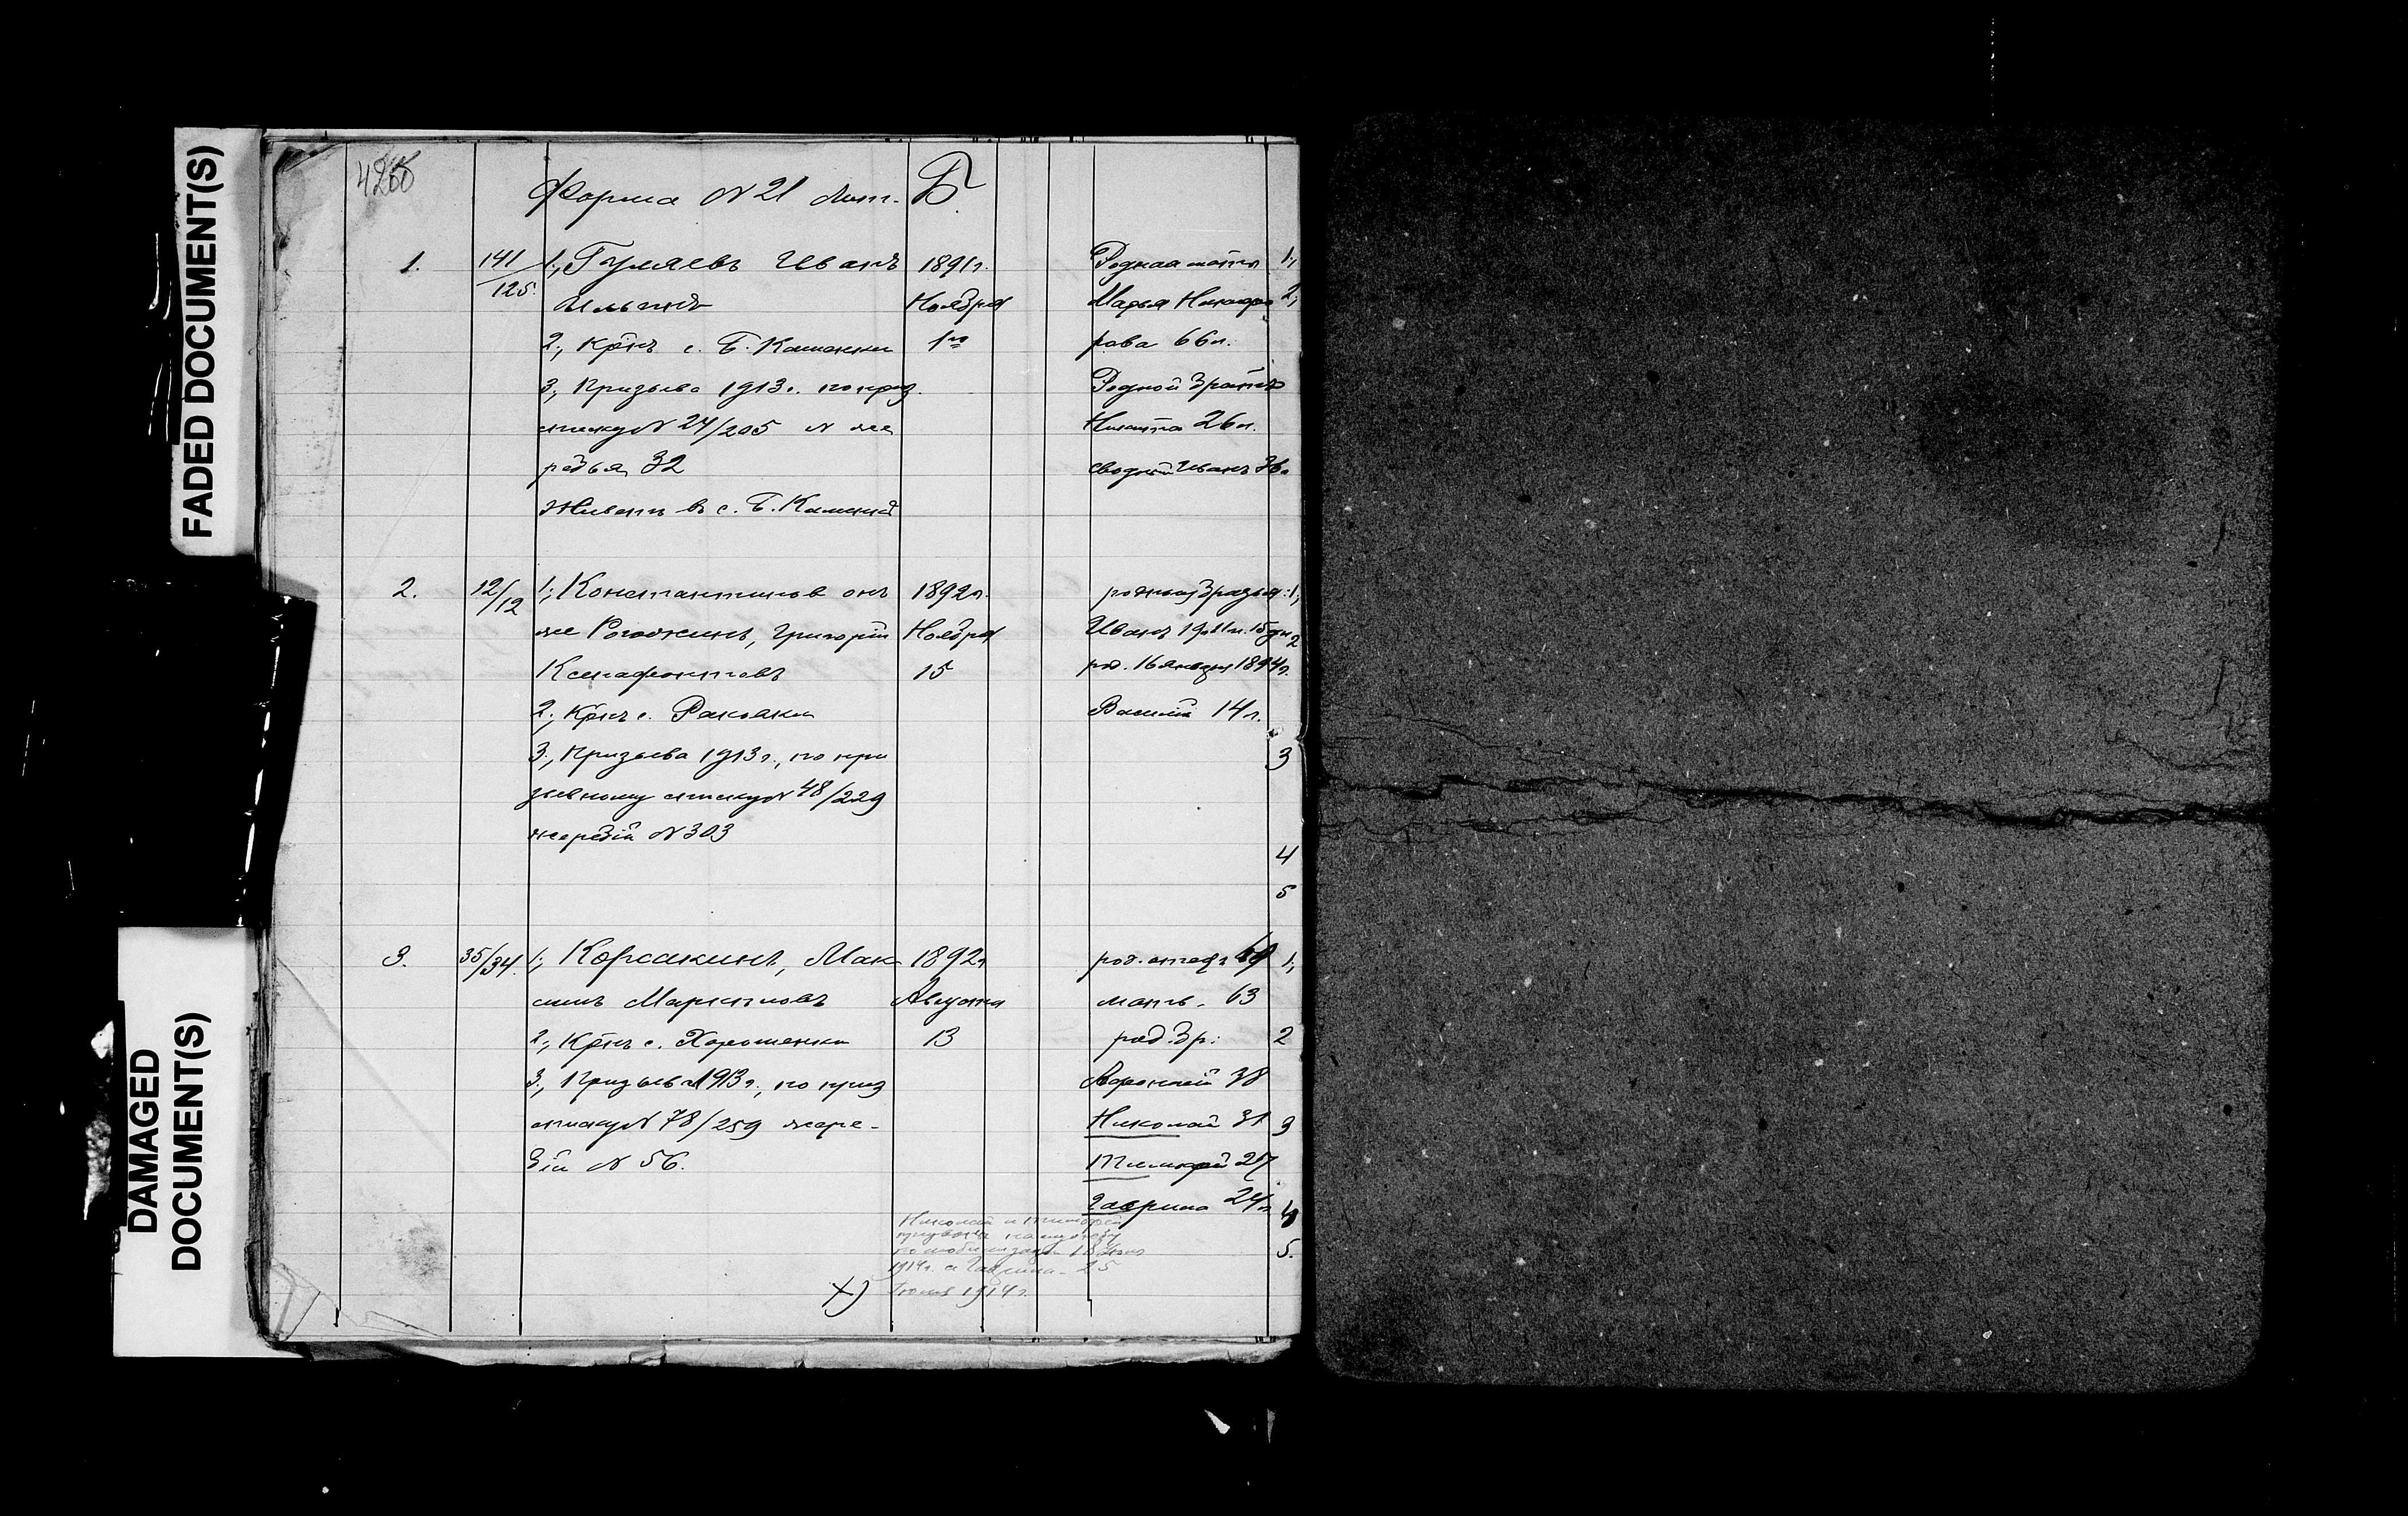 FADED DOCUMENT(S)
DAMAGED
DOCUMENT(S)
Форма N 21 Лит. Б.
1.
141/125.
1., Гуляевъ Иванъ
Ильинъ
2., Кр-нъ с. Б. Каменки
3., Призыва 1913 г. по приз.
списку N 24/205 N же
ребья 32
Живетъ въ с. Б. Каменкѣ
1891 г.
Ноября
1го
Родная мать
Марья Никифо
рова 66 л.
Родной братъ
Никита 26 л.
сводный Иванъ
1.,
2.,
2.
12/12
1., Константинов онъ
же Рогожинъ, Григорій
Ксенофонтовъ
2., Кр-нъ с. Раковки
3., Призыва 1913 г., по при
зывному списку N 48/229
жеребій N 303
1892 г.
Ноября
15
родные братья:
Иванъ 19 л. 11 м. 15 дн
род. 16 января 1894 г.
Василій 14 л.
1.,
2
3
4
5
3.
35/34.
1., Корсакинъ, Мак
симъ Мартыновъ
2., Кр-нъ с. Хорошенки
3., Призыва 1913 г., по приз
списку N 78/259 жере-
бій N 56.
1892 г
Августа
13
род. отецъ
мать - 63
род. бр:
38
Николай 31
Тимофей 27
Гаврила 24 л
1.,
2
3
4
5.
Николай и Тимофей
призваны на службу
по мобилизаціи 18 Іюля
1914 г. а Гаврила - 25
Іюля 1914 г.
×)